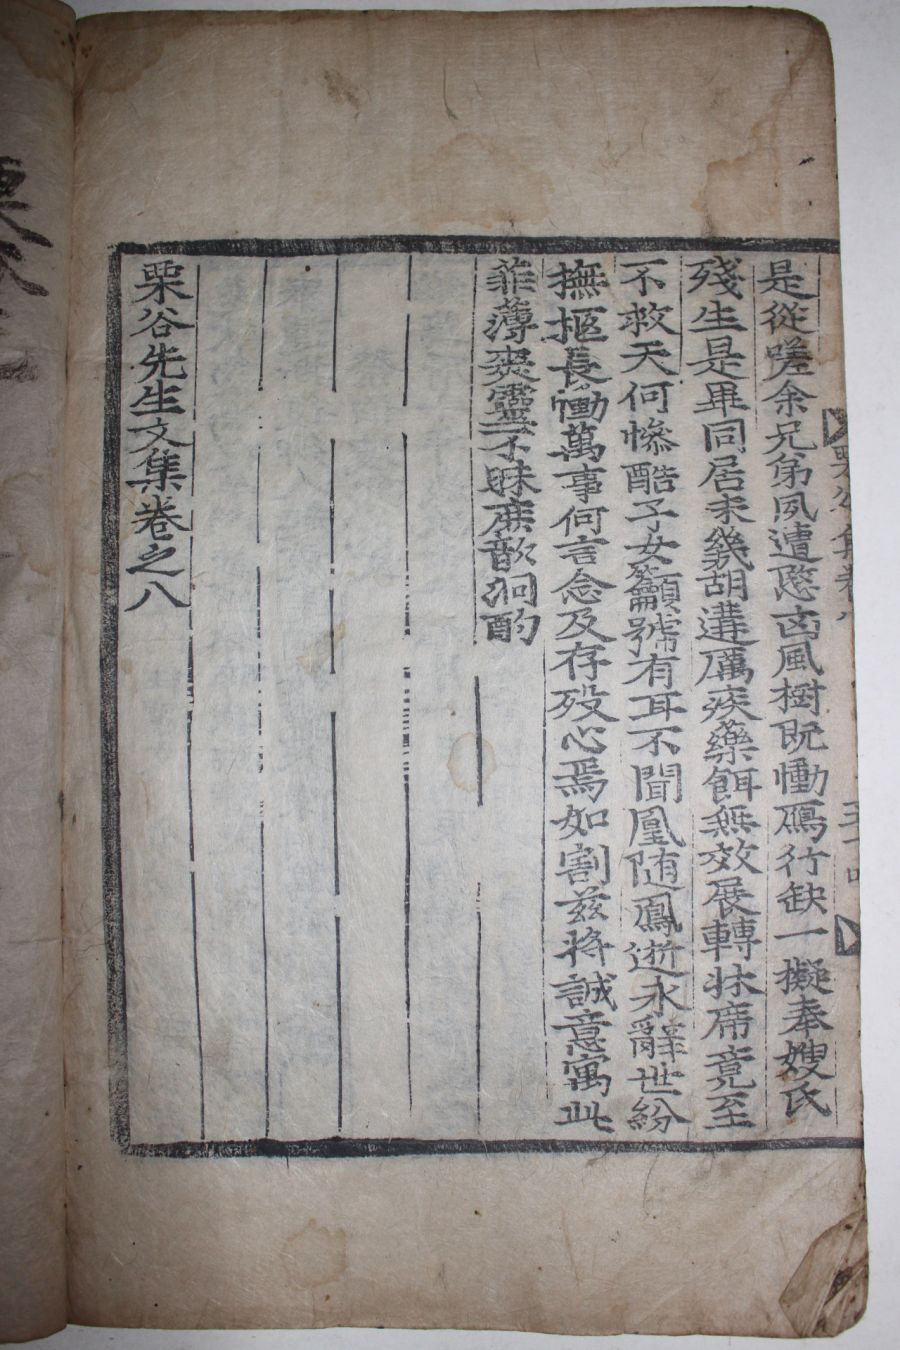 是從嗟余兄弟夙遭愍凶風樹旣慟鴈行缺一擬奉嫂氏
殘生是畢同居未幾胡遘厲疾藥餌無效展轉牀席竟至
不救天何慘酷子女籲號有耳不聞凰隨鳳逝永辭世紛
撫柩長慟萬事何言念及存歿心焉如割玆將誠意寓此
菲薄爽靈不昧庶歆泂酌
栗谷先生文集卷之八